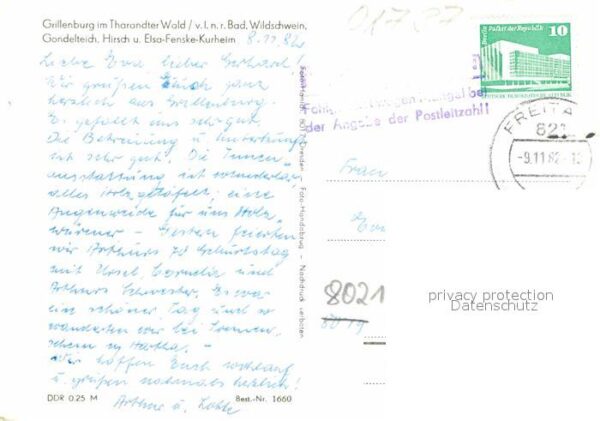 Grillenburg im Tharandter Wald / v. l. n. r. Bad, Wildschwein,
Gondelteich, Hirsch u. Elsa-Fenske-Kurheim
8.11.82
Liebe Eva, lieber Gerhard!
Wir grüßen Euch ganz
herzlich aus Grillenburg
Es gefällt uns sehr gut.
Die Betreuung u. Unterkunft
ist sehr gut. Die Innen-
ausstattung ist wunderbar,
alles Holz getäfelt; eine
Augenweide für uns Holz-
würmer - Gestern feierten
wir Arthurs 70. Geburtstag
mit Ursel, Cornelia und
Arthurs Schwester. Es war
ein schöner Tag und so
wanderten wir bei Sonnen-
schein n. Hartha. -
Wir hoffen Euch wohlauf
u. grüßen nochmals herzlich!
Arthur u.
DDR 0.25 M
Best.-Nr. 1660
Foto-Handabzug - Nachdruck verboten
01737
wegen Mangel bei
der Angabe der Postleitzahl!
Berlin Palast der Republik
10
FREITA
821
-9.11.82
Frau
8021
8019
privacy protection
Datenschutz